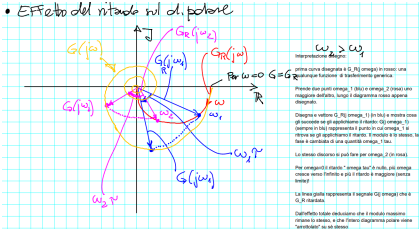 • Effetto del ritardo sul di. polare
G_R(jω₂)
G(jω)
G_R(jω₁)
G_R(jω)
ω₂ > ω₁
Per ω=0 G=G_R
Interpretazione disegno:
prima curva disegnata è G_R(j omega) in rosso: una
qualunque funzione di trasferimento generica.
Prende due punti omega_1 (blu) e omega_2 (rosa) uno
maggiore dell'altro, lungo il diagramma rosso appena
disegnato.
Disegna e vettore G_R(j omega_1) in blu e mostra cosa
gli succede se gli applichiamo il ritardo: G(j omega_1)
(sempre in blu) rappresenta il punto in cui omega_1 si
ritrova se gli applichiamo il ritardo. Il modulo è lo stesso, la
fase è cambiata di una quantità omega_1 tau.
Lo stesso discorso si può fare per omega_2 (in rosa).
Per omega=0 il ritardo " omega tau" è nullo, più omega
cresce verso l'infinito e più il ritardo è maggiore (senza
limite)!
La linea gialla rappresenta il segnale G(j omega) che è
G_R ritardata.
Dall'effetto totale deduciamo che il modulo massimo
rimane lo stesso, e che l'intero diagramma polare viene
"arrotolato" su sè stesso
R
ω
ω₁
ω₂
G(jω₂)
ω₁τ
G(jω₁)
ω₂τ